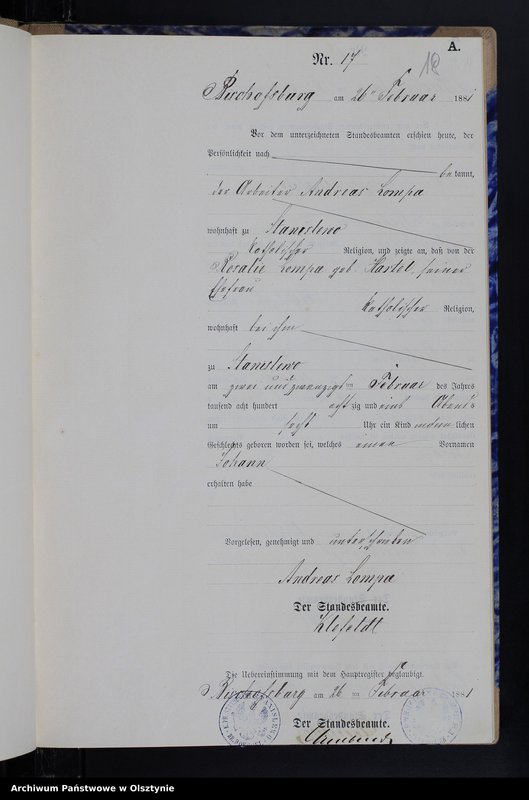 A.
Nr. 17
18
Bischofsburg am 26 Februar 1881
Vor dem unterzeichneten Standesbeamten erschien heute, der
Persönlichkeit nach
bekannt,
der Arbeiter Andreas Lompa
wohnhaft zu Stanislewo
katholischer Religion, und zeigte an, daß von der
Rosalie Lompa geb. Hartel, seiner
Ehefrau
katholischer Religion,
wohnhaft bei ihm
zu Stanislewo
am zwei und zwanzigsten Februar des Jahres
tausend acht hundert achtzig und eins Abends
um sechs Uhr ein Kind männlichen
Geschlechts geboren worden sei, welches einen Vornamen
Johann
erhalten habe
Vorgelesen, genehmigt und unterschrieben
Andreas Lompa
Der Standesbeamte.
Klefeldt
Die Uebereinstimmung mit dem Hauptregister beglaubigt.
Bischofsburg am 26 ten Februar 1881
Der Standesbeamte.
Archiwum Państwowe w Olsztynie